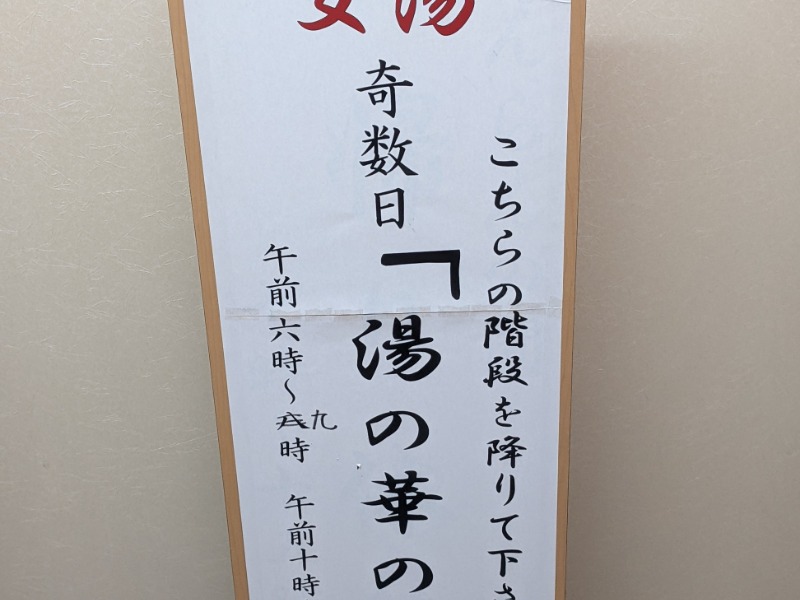 女湯
こちらの階段を降りて下さ
奇数日「湯の華の
午前六時～九時 午前十時